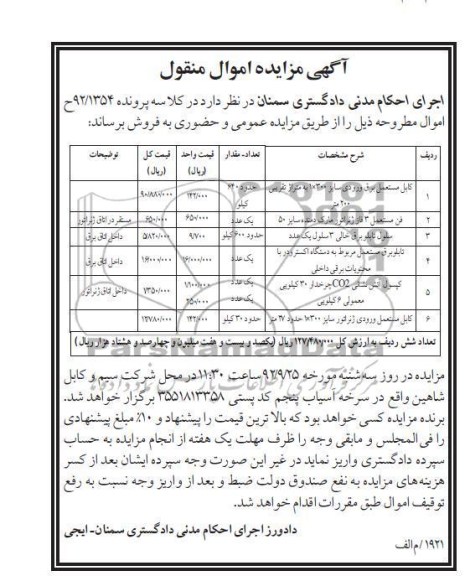 آگهی مزایده اموال منقول
اجرای احکام مدنی دادگستری سمنان در نظر دارد در کلاسه پرونده ۹۲/۱۳۵۴ح
اموال مطروحه ذیل را از طریق مزایده عمومی و حضوری به فروش برساند:
ردیف شرح مشخصات تعداد- مقدار قیمت واحد (ریال) قیمت کل (ریال) توضیحات
۱ کابل مستعمل برق ورودی سایز ۳۰۰×۱۰ به متراژ تقریبی ۲۰۰ متر حدود ۶۴۰ کیلو ۱۴۲/۰۰۰ ۹۰/۸۸۰/۰۰۰
۲ فن مستعمل ۳ فاز ژنراتور مارک دمنده سایز ۵۰ یک عدد ۶۵۰/۰۰۰ ۶۵۰/۰۰۰ مستقر در اتاق ژنراتور
۳ سلول تابلو برق خالی ۳ سلول یک عدد حدود ۶۰۰ کیلو ۹/۷۰۰ ۵/۸۲۰/۰۰۰ داخل اتاق برق
۴ تابلو برق مستعمل مربوط به دستگاه اکسترودر با محتویات برقی داخلی یک عدد ۱۶/۰۰۰/۰۰۰ ۱۶/۰۰۰/۰۰۰ داخل اتاق برق
۵ کپسول آتش نشانی CO2 چرخدار ۳۰ کیلویی معمولی ۶ کیلویی یک عدد یک عدد ۱/۱۰۰/۰۰۰ ۲۵۰/۰۰۰ ۱/۳۵۰/۰۰۰ داخل اتاق ژنراتور
۶ کابل مستعمل ورودی ژنراتور سایز ۳۰۰×۱۰ حدود ۲۷ متر حدود ۹۰ کیلو ۱۴۲/۰۰۰ ۱۲/۷۸۰/۰۰۰
تعداد شش ردیف به ارزش کل ۱۲۷/۴۸۰/۰۰۰ ریال (یکصد و بیست و هفت میلیون و چهارصد و هشتاد هزار ریال)
مزایده در روز سه‌شنبه مورخه ۹۲/۹/۲۵ ساعت ۱۱:۳۰ در محل شرکت سیم و کابل
شاهین واقع در سرخه آسیاب پنجم کد پستی ۳۵۵۱۸۱۳۳۵۸ برگزار خواهد شد.
برنده مزایده کسی خواهد بود که بالاترین قیمت را پیشنهاد و ۱۰٪ مبلغ پیشنهادی
را فی المجلس و مابقی وجه را ظرف مهلت یک هفته از انجام مزایده به حساب
سپرده دادگستری واریز نماید در غیر این صورت وجه سپرده ایشان بعد از کسر
هزینه‌های مزایده به نفع صندوق دولت ضبط و بعد از واریز وجه نسبت به رفع
توقیف اموال طبق مقررات اقدام خواهد شد.
دادورز اجرای احکام مدنی دادگستری سمنان- ایجی
۱۹۲۱/م الف